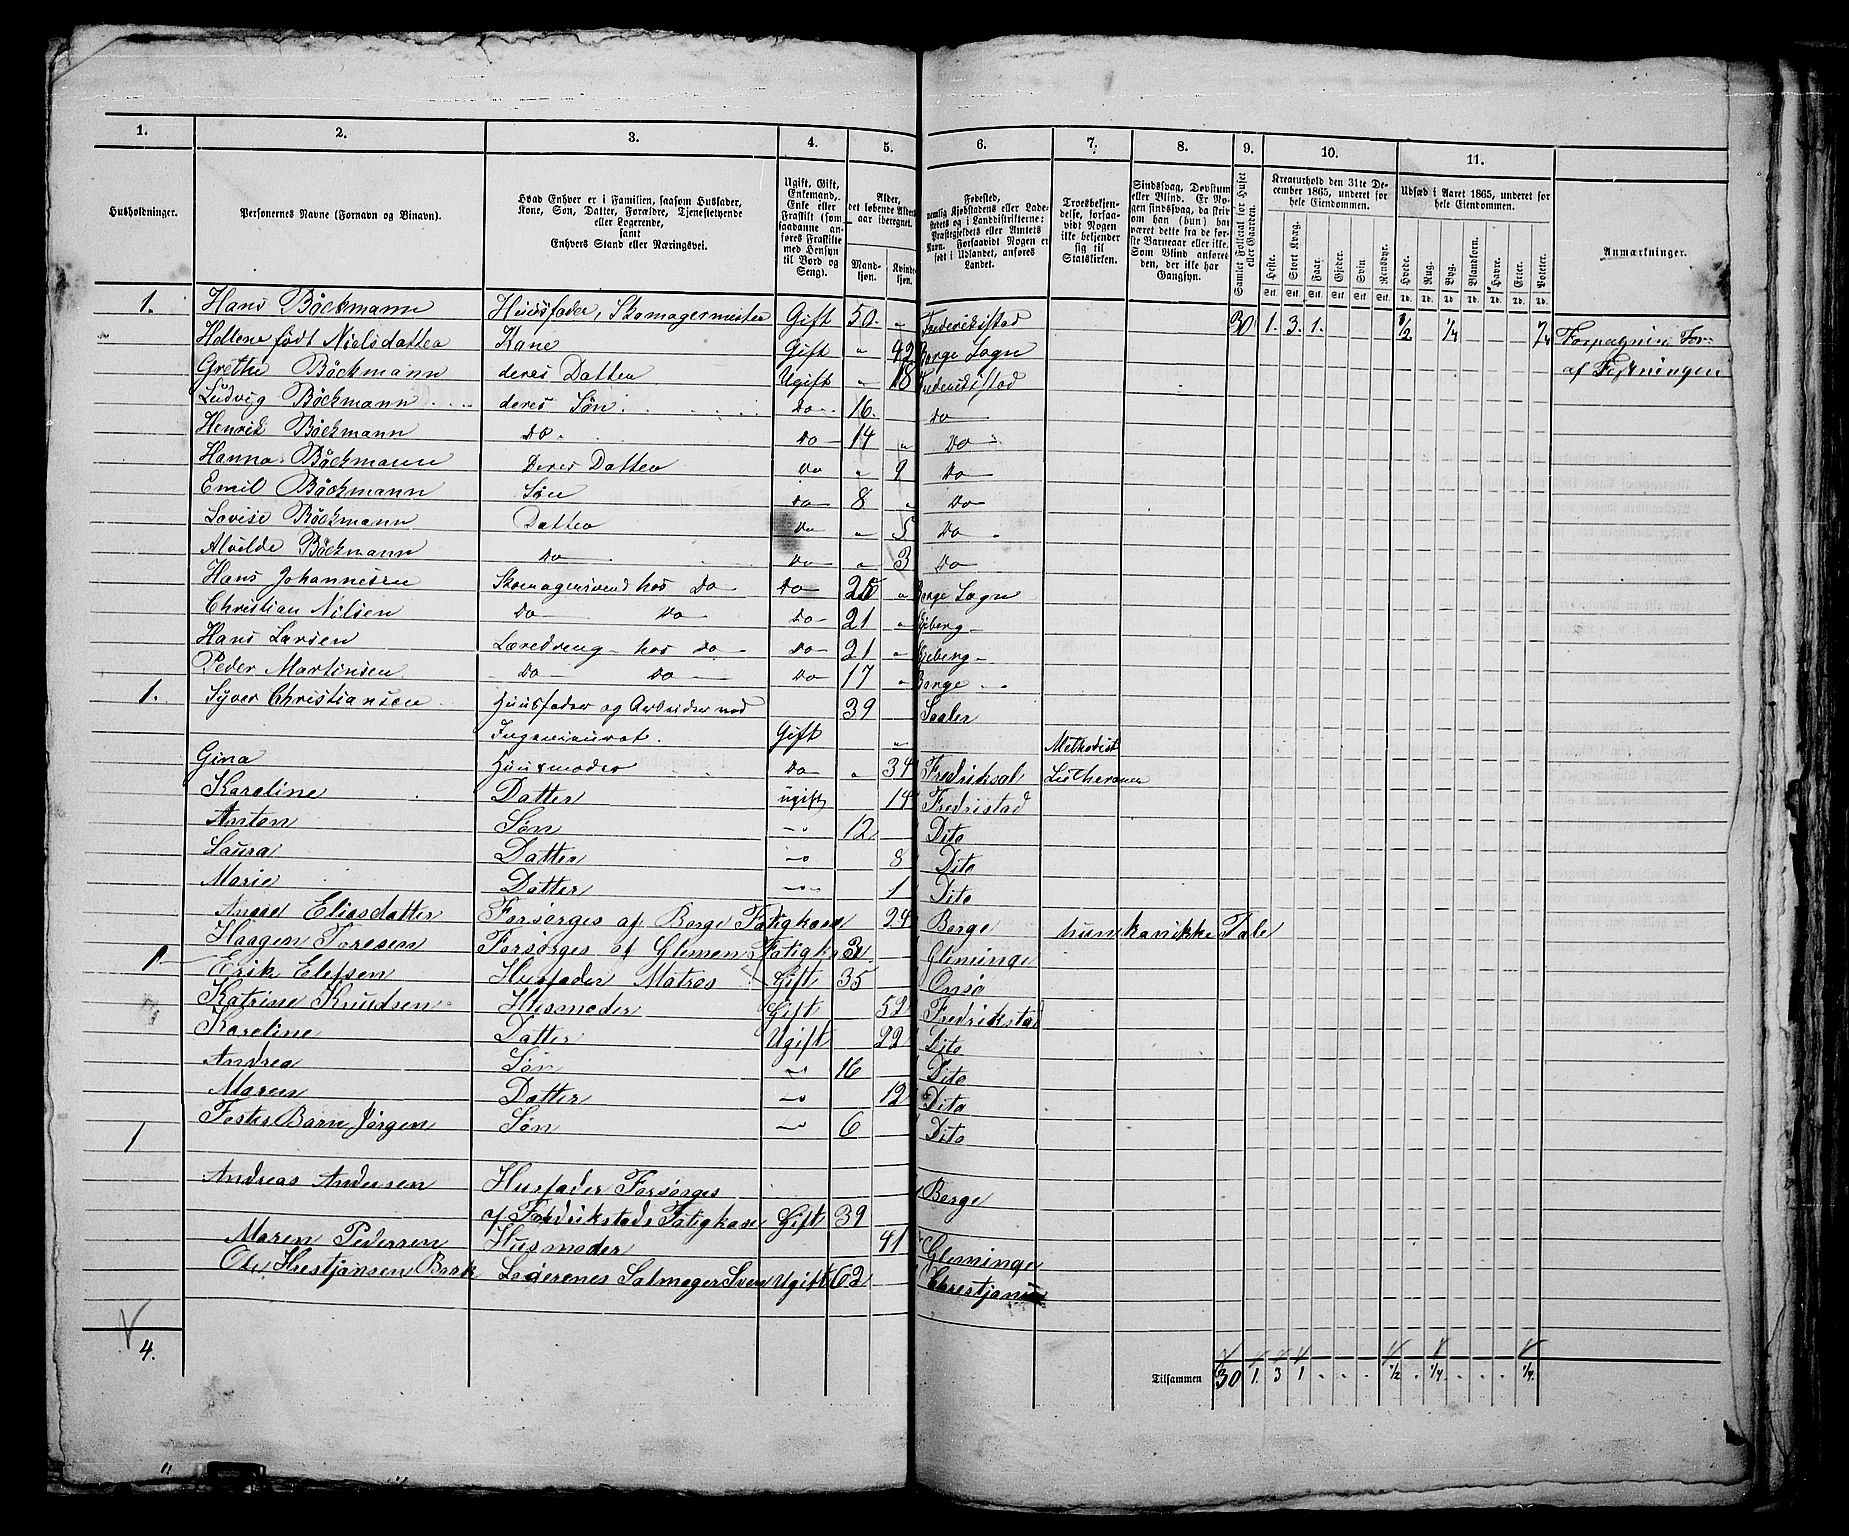 1. 2. 3. 4. 5. 6. 7. 8. 9. 10. 11.
Husholdninger.
Personernes Navne (Fornavn og Binavn).
Hvad Enhver er i Familien, saasom Husfader,
Kone, Søn, Datter, Forældre, Tjenestetyende
eller Logerende,
samt
Enhvers Stand eller Næringsvei.
Ugift, Gift,
Enkemand,
Enke eller
Fraskilt (som
saadanne an-
føres Fraskilte
med Hensyn
til Bord og
Seng).
Alder,
det løbende Alders-
aar iberegnet.
Mand-
kjøn.
Kvinde-
kjøn.
Fødested,
nemlig Kjøbstadens eller Lade-
stedets og i Landdistrikterne:
Præstegjeldets eller Amtets
Navn. Forsaavidt Nogen er
født i Udlandet, anføres
Landet.
Troesbekjen-
delse, forsaa-
vidt Nogen
ikke bekjender
sig til
Statskirken.
Sindssvag, Døvstum
eller Blind. Er No-
gen sindssvag, da skriv
om han (hun) har
været dette fra de før-
ste Barneaar eller ikke.
Som Blind anføres
den, der ikke har
Gangsyn.
Samlet Folketal for Huset
eller Gaarden.
Kreaturhold den 31te De-
cember 1865, underet for
hele Eiendommen.
Heste. Stort Kvæg. Faar. Gjeder. Svin. Rensdyr.
Stk. Stk. Stk. Stk. Stk. Stk.
Udsæd i Aaret 1865, underet for
hele Eiendommen.
Hvede. Rug. Byg. Blandkorn. Havre. Erter. Poteter.
Td. Td. Td. Td. Td. Td. Td.
Anmærkninger.
1. Hans Böckmann Huusfader, Skomagermester Gift 50. " Frederikstad 30 1. 3. 1. 1/2 1/4
Hellene født Nielsdatter Kone Gift " 42 Borge Sogn
Grethe Böckmann deres Datter Ugift " 18 Frederikstad
af Festningen
Ludvig Böckmann deres Søn Do 16. Do
Henrik Böckmann Do. Do 14 " Do
Hanna Böckmann Deres Datter Do " 9 Do
Emil Böckmann Søn Do 8 " Do
Lovise Böckmann Datter Do " 5 Do
Alvilde Böckmann Do Do " 3 Do
Hans Johannesen Skomagersvend hos Do Do 25 " Borge Sogn
Christian Nilsen Do Do Do 21 "
Hans Larsen Læredreng hos Do Do 21 "
Peder Martinsen Do Do Do 17 " Borge
1. Syver Christiansen Huusfader og Arbeider ved 39
Ingeniøuret. Gift " Methodist
Gina Huusmoder Do " 34 Fredrikshal Lutheraner
Karoline Datter ugift 14 Fredristad
Anton Søn " 12 Dito
Laura Datter " 8 Dito
Marie Datter " 1 Dito
Elisdatter Forsørges af Borge Fatigkasse 24 Borge hun kan ikke Tale
Haagen Toresen Forsørges af Glemen Fatigk Gleminge
1 Erik Elefsen Husfader Matros Gift 35 Onsø
Katrine Knudsen Husmoder Gift 52 Fredrikstad
Kareline Datter Ugift 22 Dito
Andrea Søn " 16 Dito
Maren Datter " 12 Dito
Foster Barn Jørgen Søn " 6 Dito
1
Andreas Andersen Husfader Forsørges Borge
af Fredrikstads Fatigkasse Gift 39
Maren Pedersen Husmoder 41 Gleminge
Ole Hrestjansen Bark Loderenes Salmager Sven Ugift 62
4.
Tilsammen 30 1. 3 1 . . . 1/2 . 1/4 . . . 1/4.